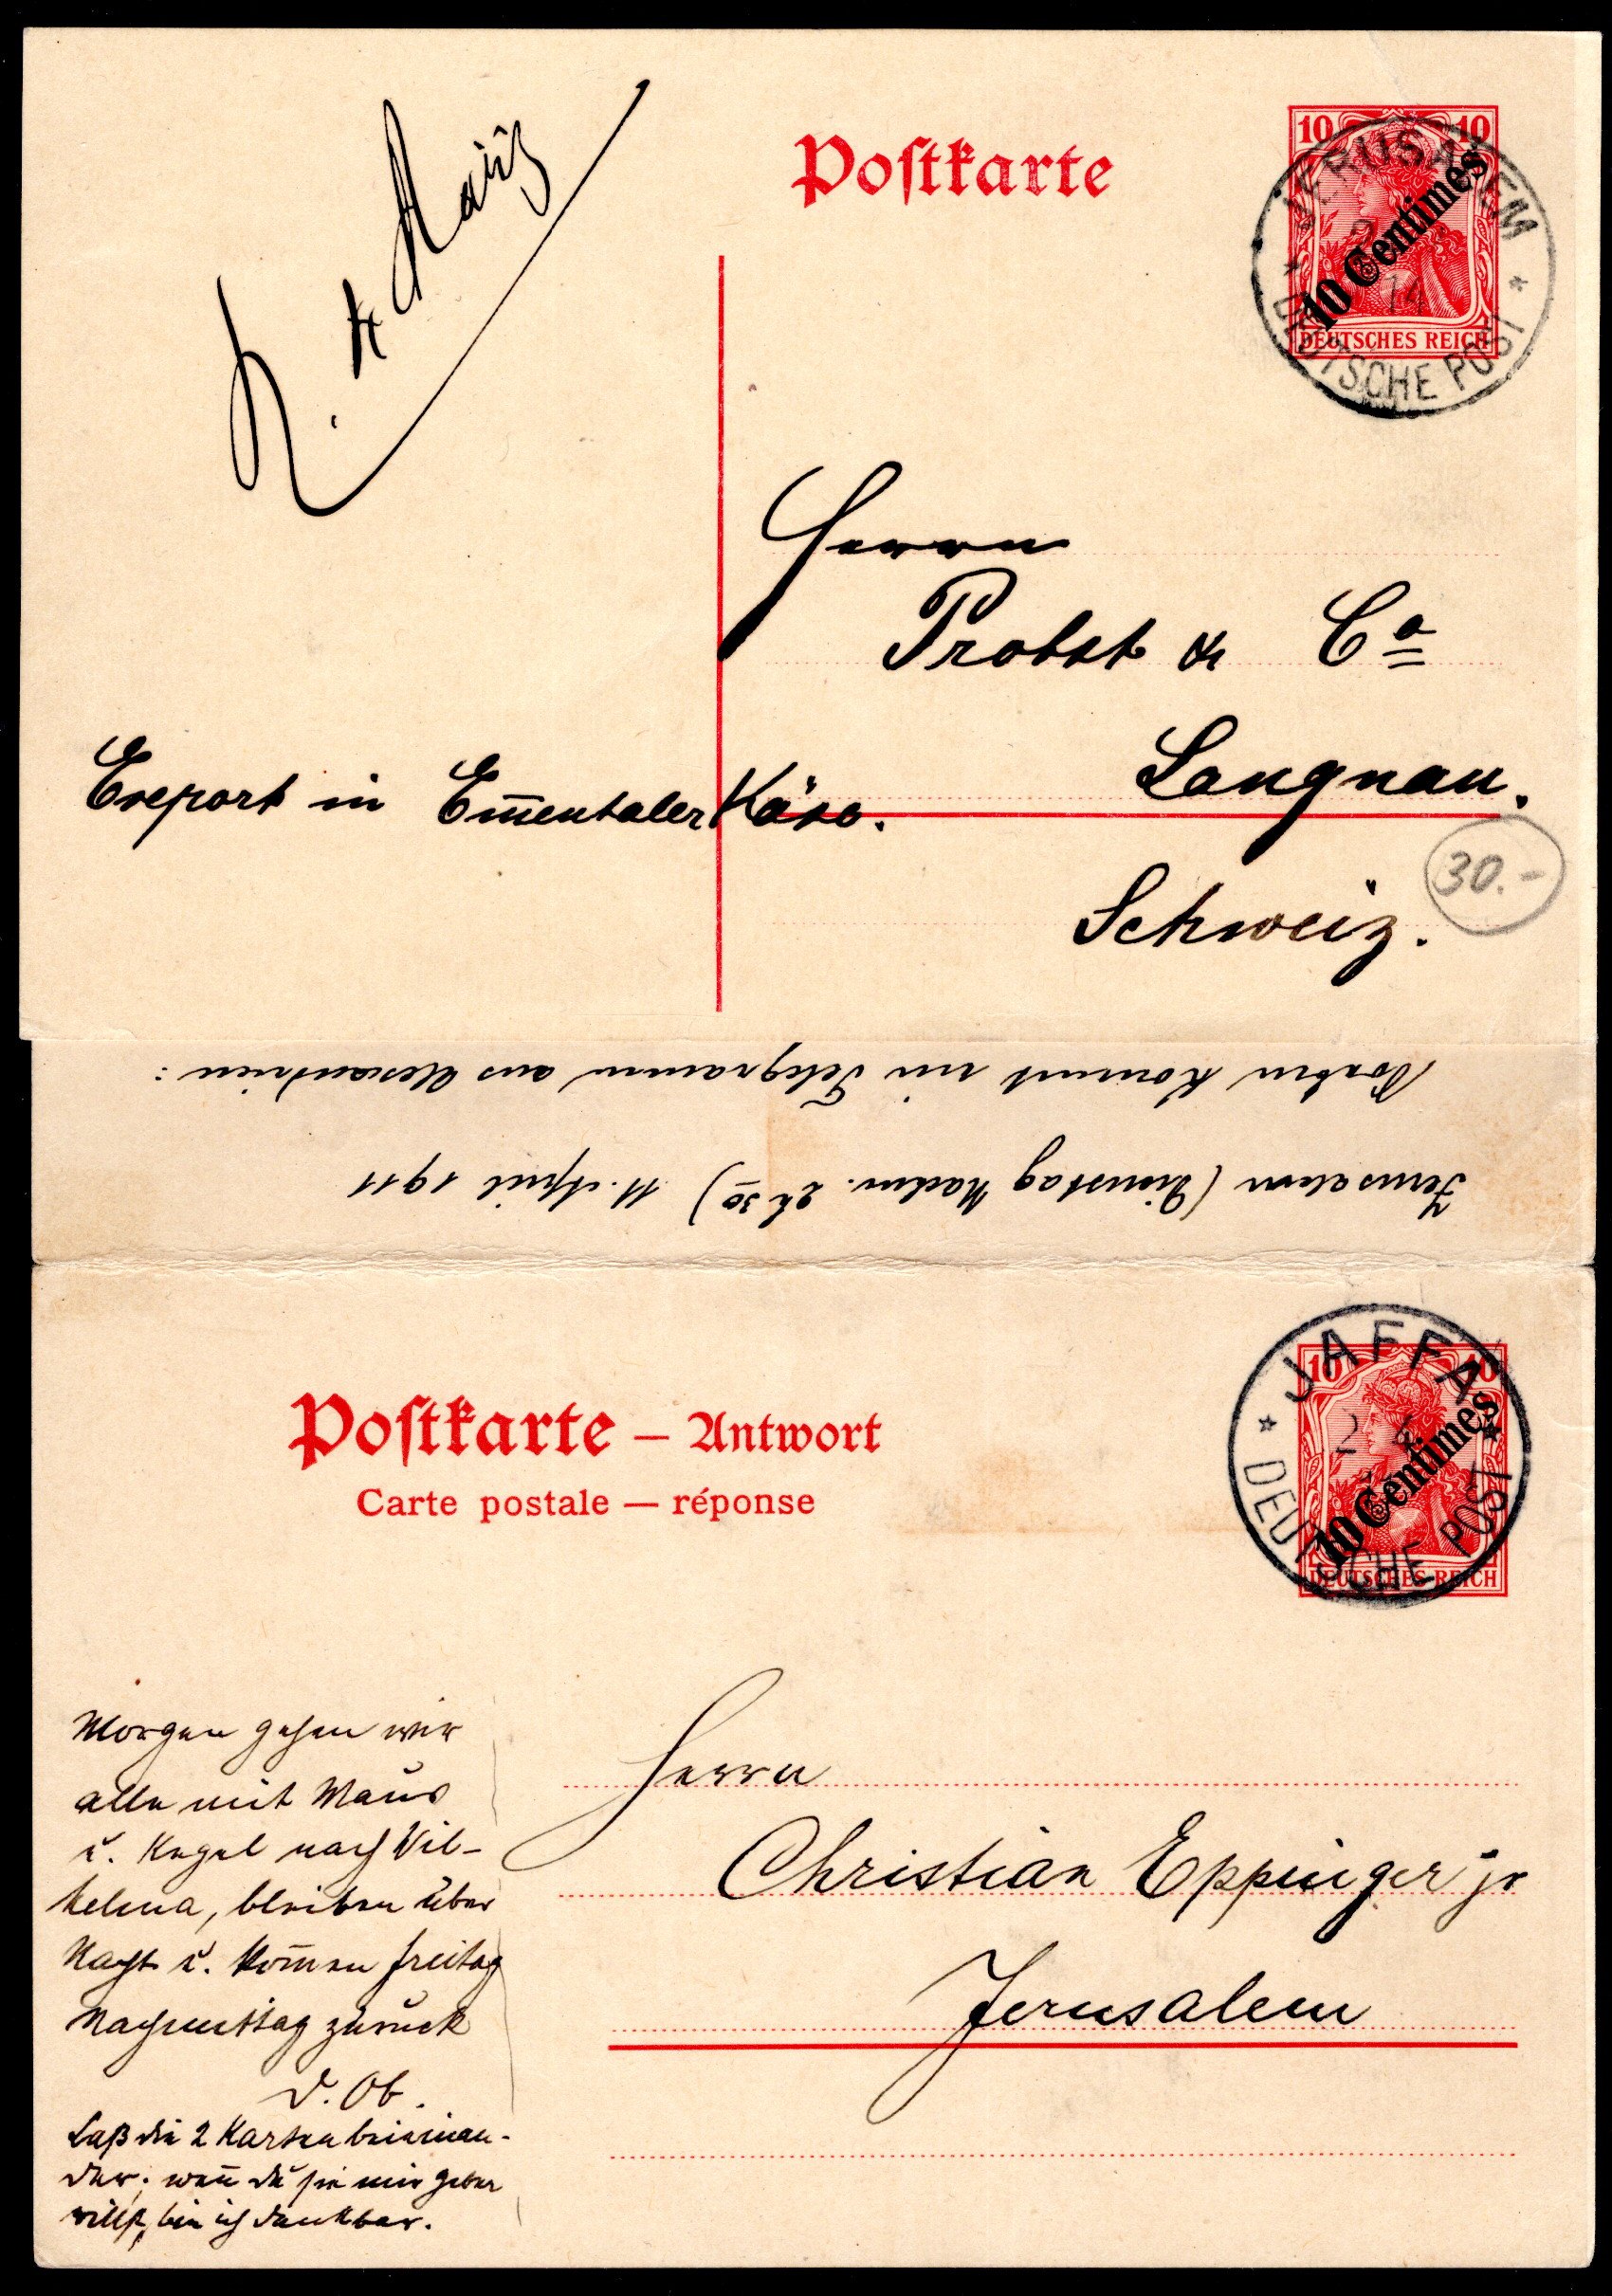 Postkarte
10 10
10 Centimes
DEUTSCHES REICH
JERUSALEM
14
DEUTSCHE POST
Herrn
Probst & Co
Langnau.
Export in Em̅entaler Käse.
30.-
Schweiz.
Jerusalem (Dienstag Nachm. 2h 30) 11. April 1911
Soeben kommt ein Telegramm aus Alexandrien:
Postkarte – Antwort
Carte postale — réponse
10 10
10 Centimes
DEUTSCHES REICH
JAFFA
DEUTSCHE POST
Morgen gehen wir
alle mit Maus
u. Kegel nach Wil-
helma, bleiben über
Nacht u. kom̅en Freitag
Nachmittag zurück
D. Ob.
Laß die 2 Karten beieinan-
der; wen̅ du sie mir geben
willst, bin ich dankbar.
Herrn
Christian Eppinger jr
Jerusalem